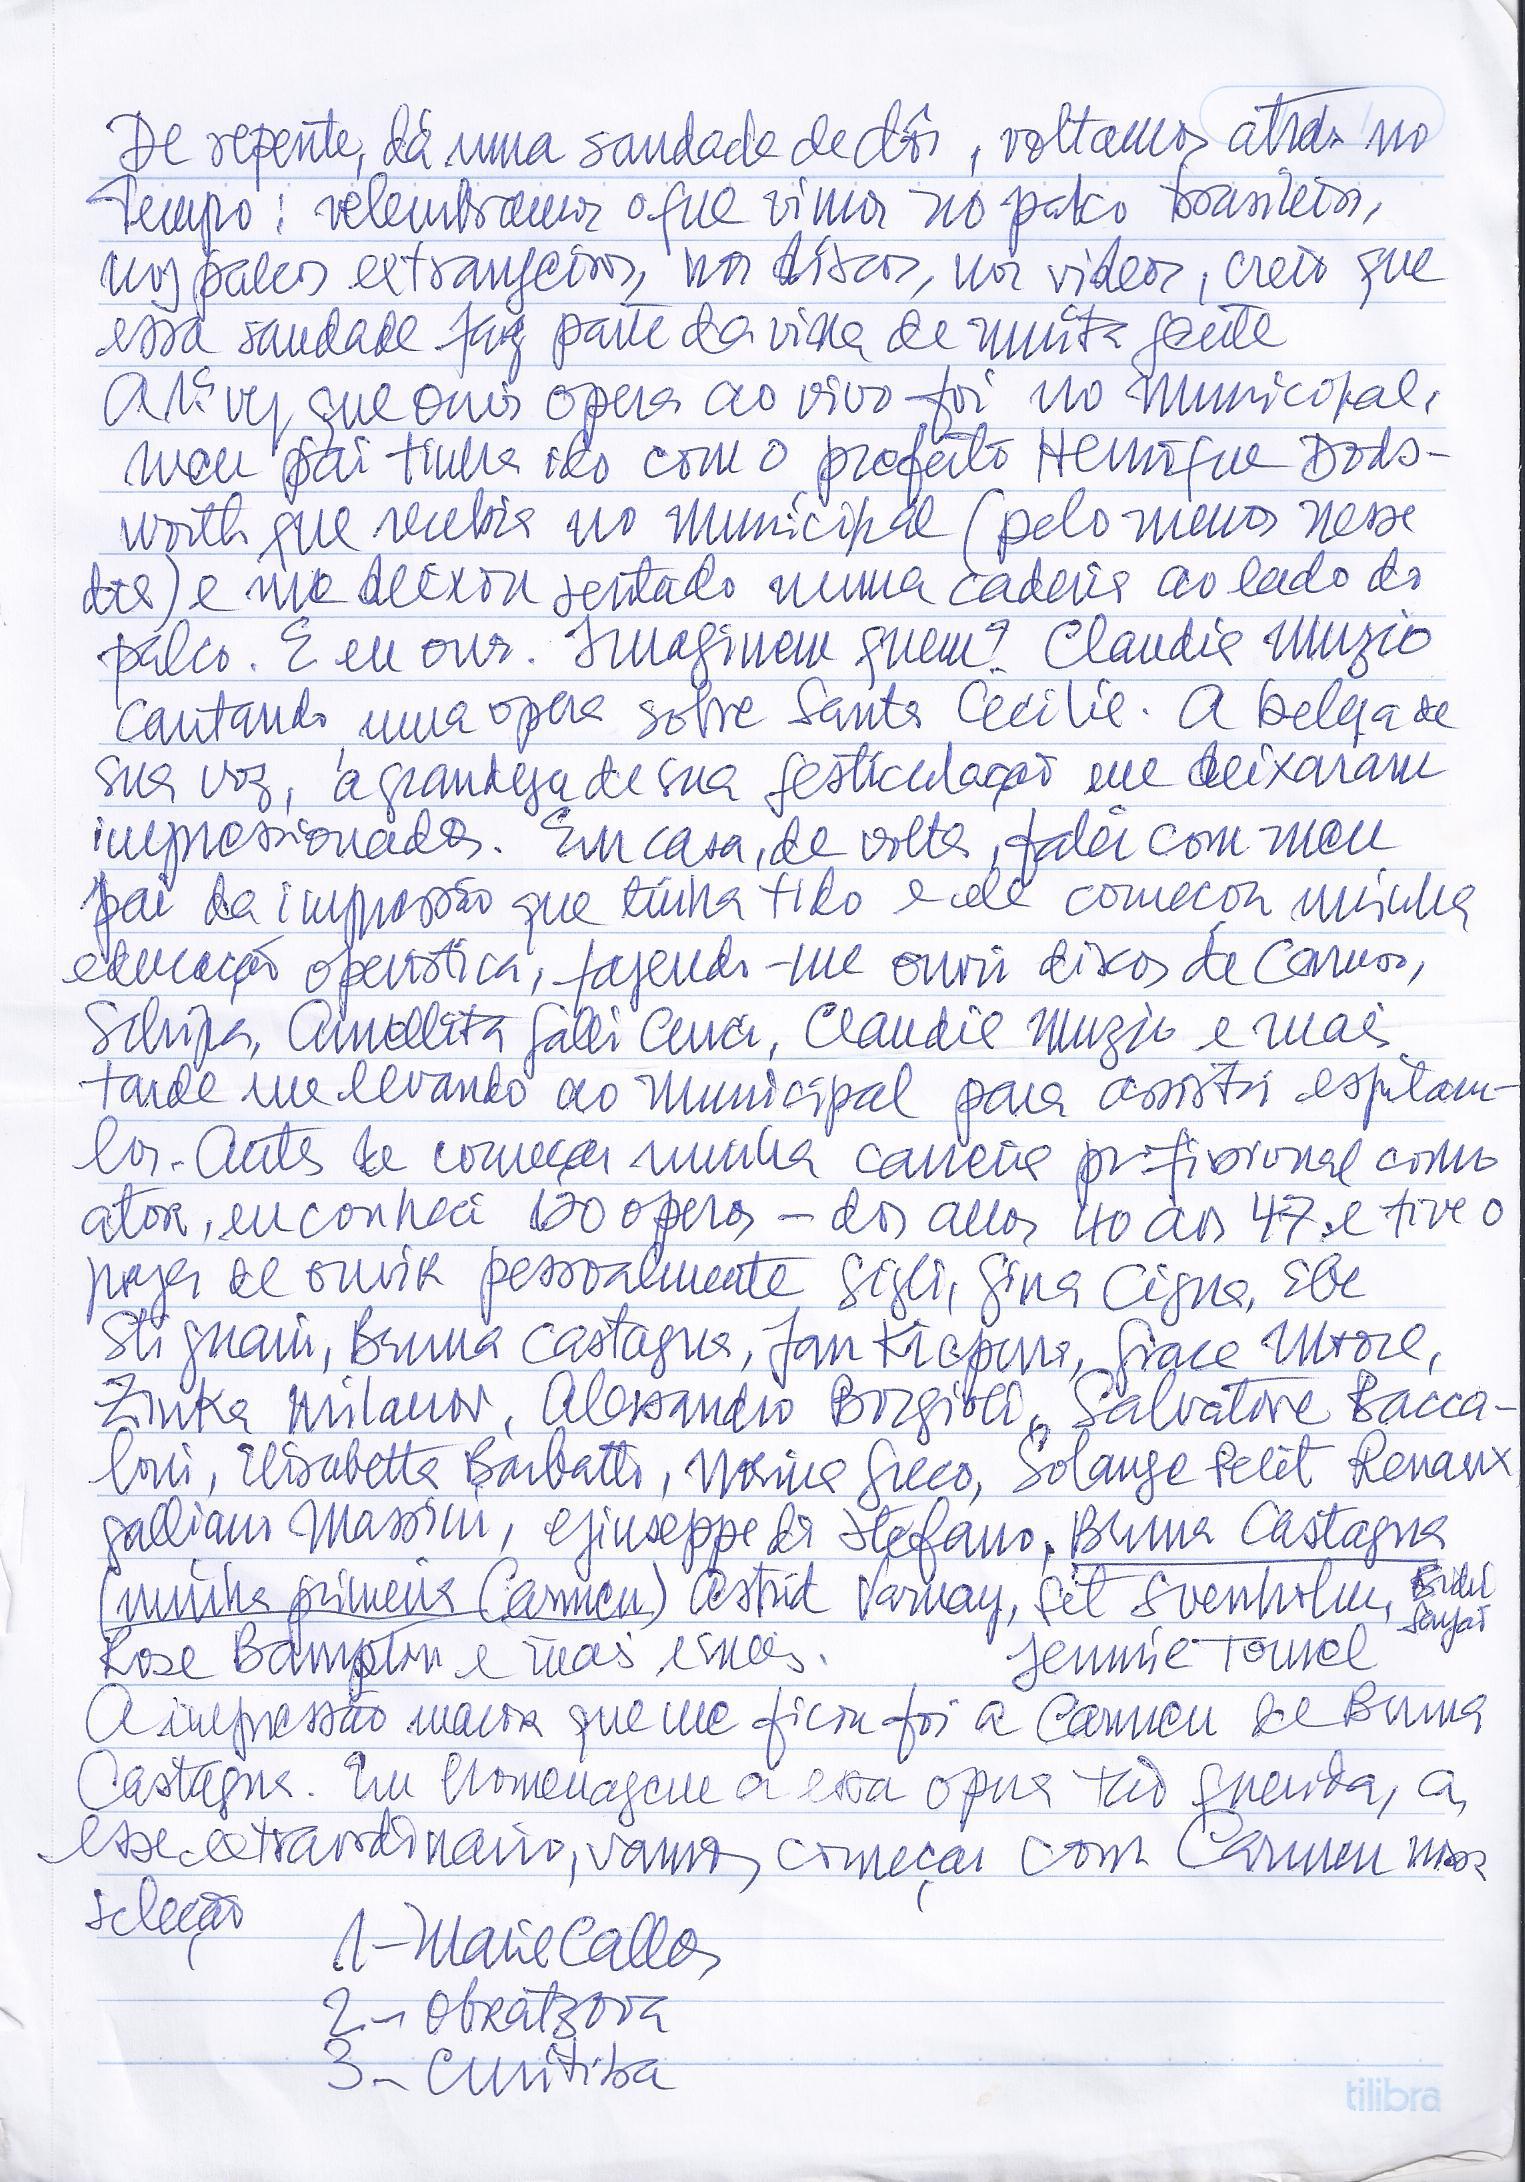 De repente, dá uma saudade de dôr, voltamos atrás no
Tempo: relembramos o que vimos no palco brasileiro,
nos palcos extrangeiros, nos discos, nos videos, creio que
essa saudade faz parte da vida de muita gente
A 1ª vez que ouvi opera ao vivo foi no Municipal,
meu pai tinha ido com o prefeito Henrique Dods-
worth que recebia no Municipal (pelo menos nesse
dia) e me deixou sentado numa cadeira ao lado do
palco. E eu ouvi. Imaginem quem? Claudia Muzio
cantando uma opera sobre Santa Cecilia. A beleza de
sua voz, a grandeza de sua gesticulação me deixaram
impressionado. Em casa, de volta, falei com meu
pai da impressão que tinha tido e ele começou minha
educação operistica, fazendo-me ouvir discos de Caruso,
Schipa, Amellita Galli Curci, Claudia Muzio e mais
tarde me levando ao Municipal para assistir espetacu-
los. Antes de começar minha carreira profissional como
ator, eu conheci 120 operas - dos anos 40 aos 47 e tive o
prazer de ouvir pessoalmente Gigli, Gina Cigna, Ebe
Stignani, Bruna Castagna, Jan Kiepura, Grace Moore,
Zinka Milanov, Alessandro Borgioli, Salvatore Bacca-
loni, Elisabetta Barbatti, Norina Greco, Solange Petit Renaux
Galliano Massini, Giuseppe di Stefano, Bruna Castagna
(minha primeira Carmen) Astrid Varnay, Set Svenholm, Bidu
Sayão
Rose Bampton e mais Jennie Tourel
A impressão maior que me ficou foi a Carmen de Bruna
Castagna. Em homenagem a essa opera tão querida, a
esse extraordinario, vamos começar com Carmen
seleção
1- Maria Callas
2- Obratzova
3- Curitiba
tilibra